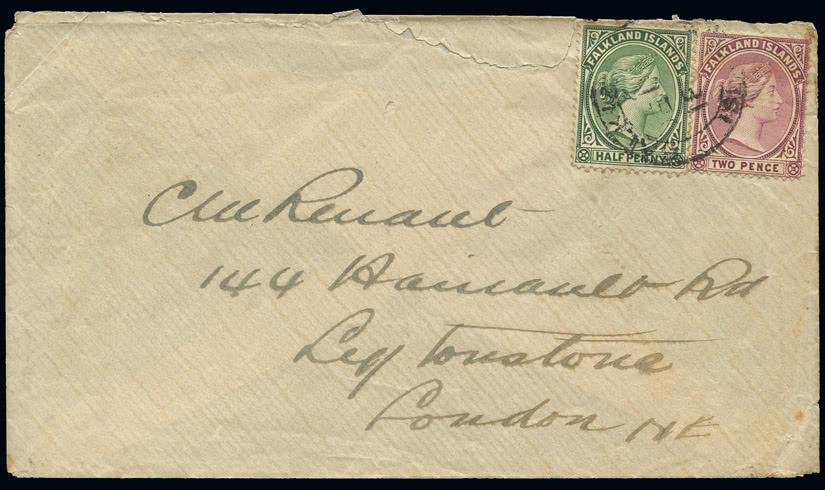 FALKLAND ISLANDS
HALF PENNY
FALKLAND ISLANDS
TWO PENCE
Renaut
144 Hainault Rd
Leytonstone
London NE